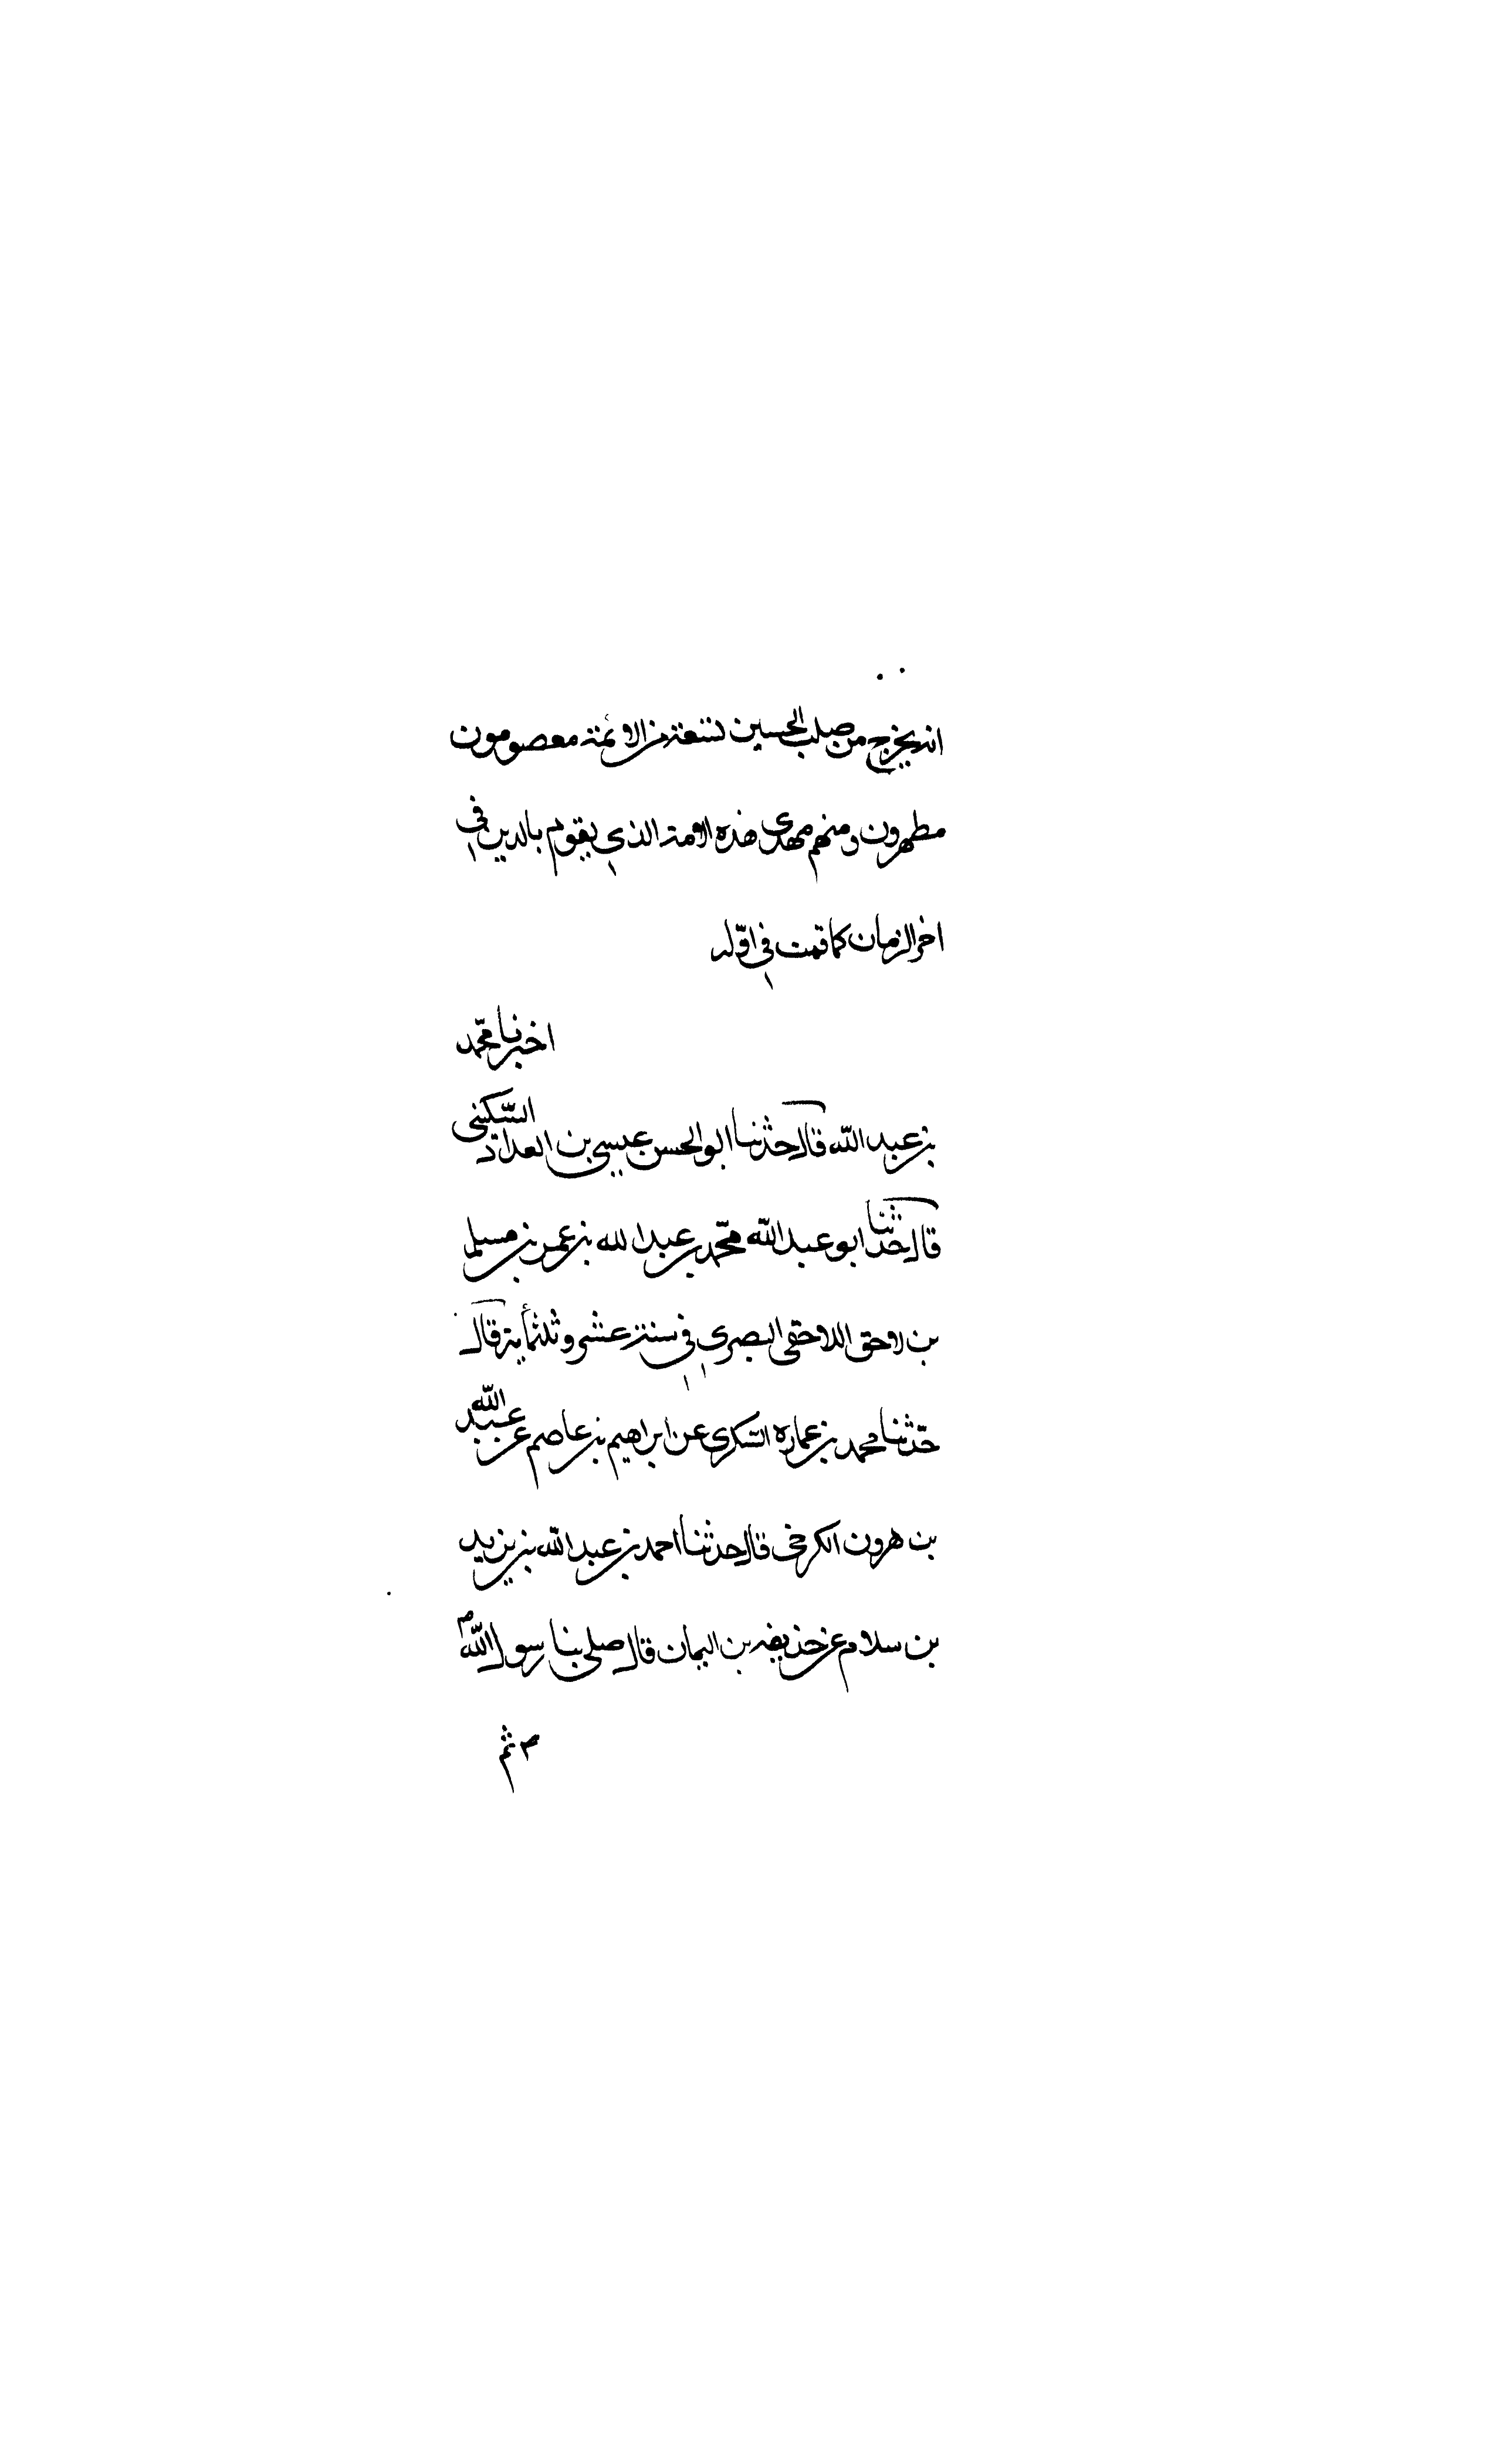 انه يخرج من صلب الحسين تسعة من الائمة معصومون
مطهرون ومنهم مهدي هذه الامة الذي يقوم بالدين في
اخر الزمان كما قمت في اوّله
اخبرنا محمّد
بن عبد الله قال حدّثنا ابو الحسن عيسى بن العراد السكنى
قال حدّثنا ابو عبد الله محمّد بن عبد الله بن عمر بن مسلم
بن لاحق اللاحقى البصري في سنة عشر وثلثمأية قال
حدّثنا محمد بن عماره السّكرى عن ابراهيم بن عاصم عن عبد الله
بن هرون الكرخى قال حدثنا احمد بن عبد الله بن يزيد
بن سلام عن حذيفه بن اليمان قال صلى بنا رسول اللهّ ص
ثم